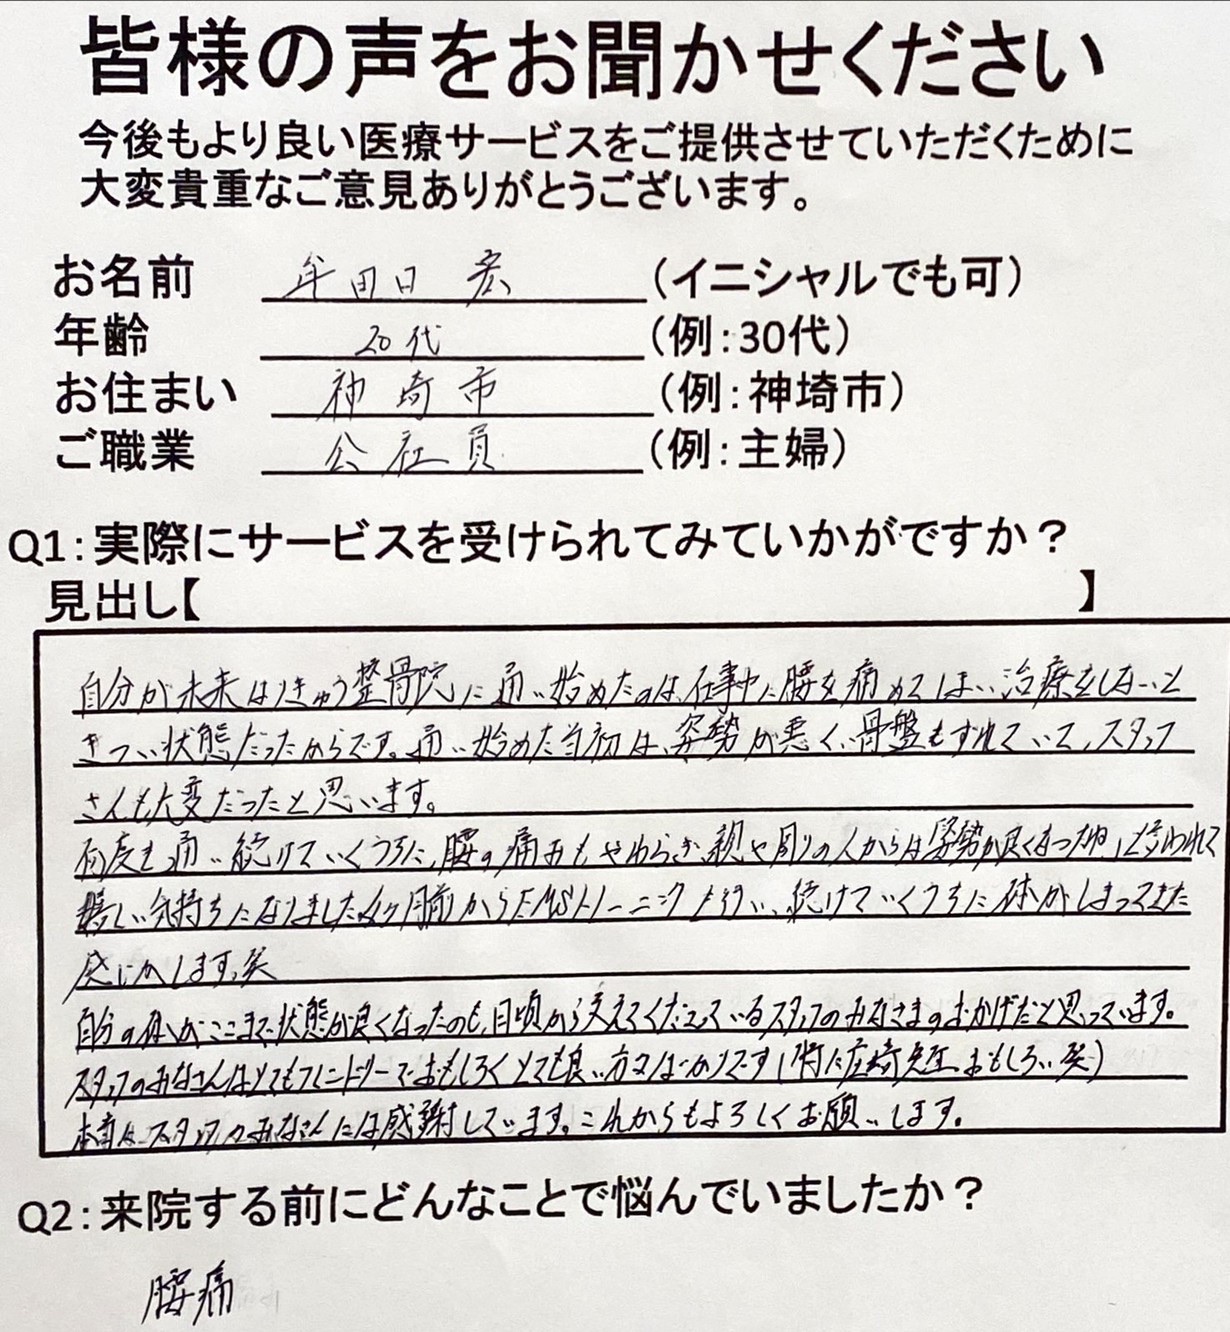 皆様の声をお聞かせください
今後もより良い医療サービスをご提供させていただくために
大変貴重なご意見ありがとうございます。
お名前 牟田口 宏 (イニシャルでも可)
年齢 20代 (例:30代)
お住まい 神埼市 (例:神埼市)
ご職業 会社員 (例:主婦)
Q1:実際にサービスを受けられてみていかがですか?
見出し【 】
自分が未来はりきゅう整骨院に通い始めたのは、仕事中に腰を痛めてしまい、治療をしないと
きつい状態だったからです。通い始めた当初は、姿勢が悪く、骨盤もずれていて、スタッフ
さんも大変だったと思います。
何度も通い続けていくうちに、腰の痛みもやわらぎ、親や周りの人からは「姿勢が良くなったね」と言われて
嬉しい気持ちになりました。4ヶ月前からEMSトレーニングも行い、続けていくうちに体がしまってきた
感じがします。笑
自分の体がここまで状態が良くなったのも、日頃から支えてくださっているスタッフのみなさまのおかげだと思っています。
スタッフのみなさんはとてもフレンドリーでおもしろくとても良い方々ばかりです(特に 先生、おもしろい笑)
本当にスタッフのみなさんには感謝しています。これからもよろしくお願いします。
Q2:来院する前にどんなことで悩んでいましたか?
腰痛